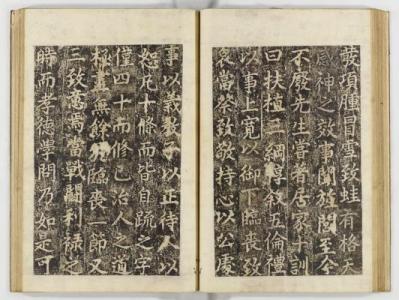 發項腫冒雪致蛙有格天
感神之效事聞旌閭至今
不廢先生嘗著居家十訓
曰扶植三綱惇叙五倫禮
以事上寬以御下臨喪致
哀當祭致敬持心以公處
事以義教子以正待人以
恕凡十條而皆自疏之字
僅四十而修己治人之道
極盡無餘
臨喪一節又
三致焉當戰鬪利祿之
時而孝德學問乃如是可